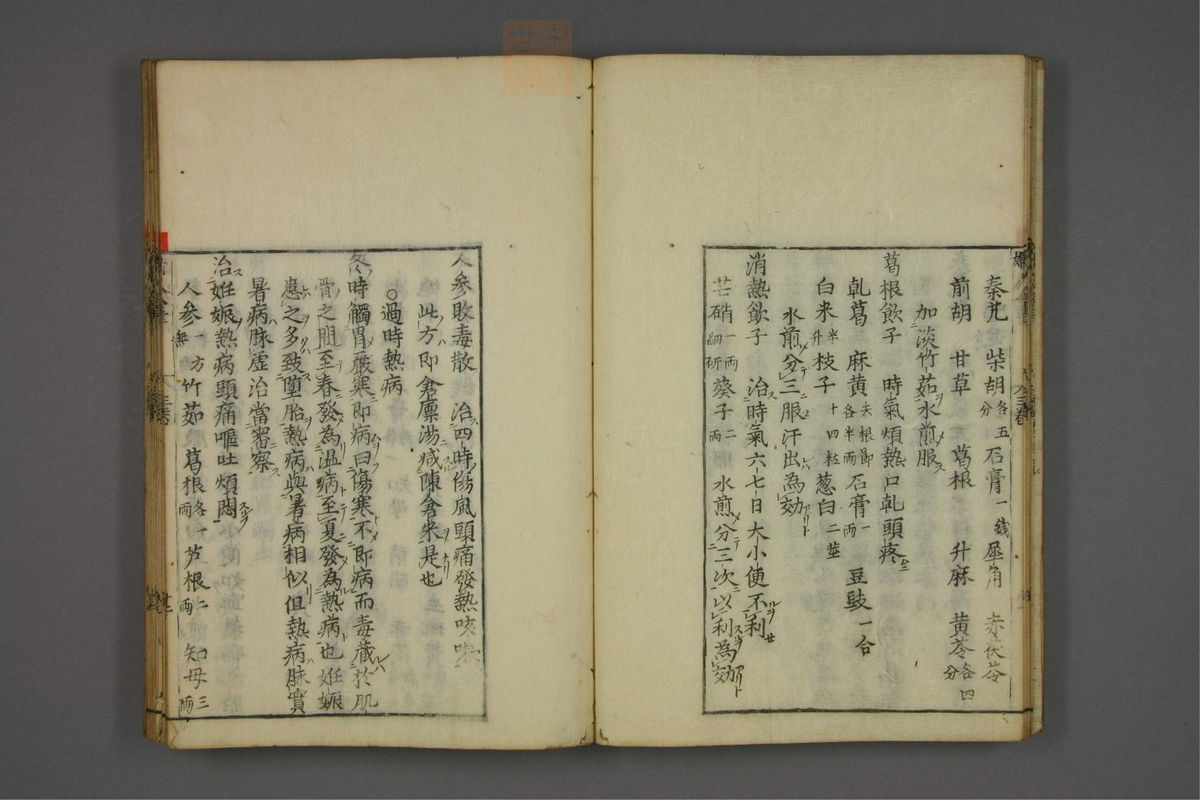 秦艽 柴胡各五分 石膏一錢 犀角 赤茯苓
前胡 甘草 葛根 升麻 黄芩各四分
加淡竹茹水煎服
葛根飲子 時氣煩熱口乹頭疼
乹葛 麻黄去根節各半両 石膏一両 豆豉一合
白米半升 枝子十四粒 葱白二莖
水煎分三服汗出為効
消熱飲子 治時氣六七日大小便不利
芒硝一両細研 葵子二両 水煎分三次以利為効
人参敗毒散 治四時傷風頭痛發熱咳嗽
此方即倉廪湯減陳倉米是也
○過時熱病
冬時觸冒嚴寒即病曰傷寒不即病而毒藏於肌
骨之間至春發為温病至夏發為熱病也妊娠
患之多致墮胎熱病與暑病相似但熱病脉實
暑病脉虚治當審察
治妊娠熱病頭痛嘔吐煩悶
人参一方無 竹茹 葛根各一両 芦根二両 知母三両